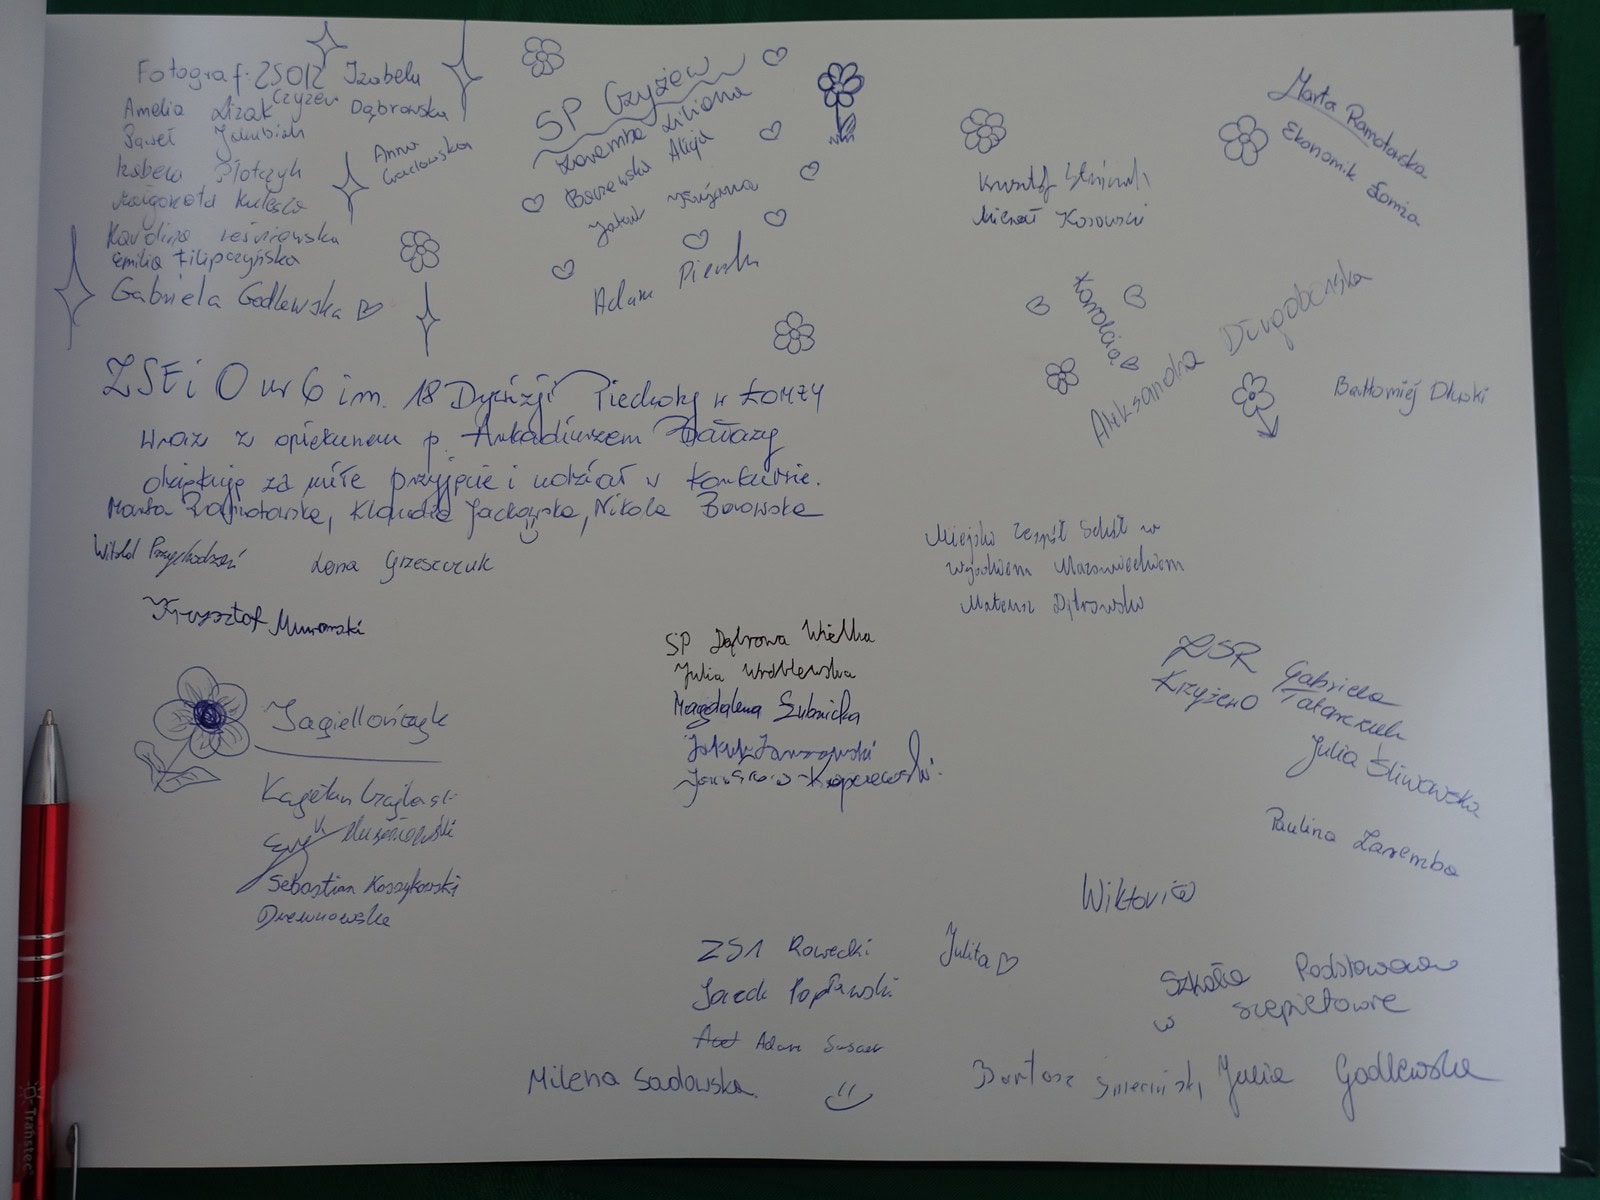 Fotograf. ZSOIZ Izabela
Amelia Lizak Czyżew Dąbrowska
Paweł Jakubiak
Izabela
Małgorzata Kulesza
Karolina Leśniewska
Emilia Filipczyńska
Gabriela Godlewska
Anna
SP Czyżew
Zaremba Liliana
Baczewska Alicja
Jakub
Adam
Marta Ramotowska
Ekonomik Łomża
Krzysztof
Michał Kosowski
Karolcia
Aleksandra Długoborska
Bartłomiej Dłuski
ZSEiO nr 6 im. 18 Dywizji Piechoty w Łomży
wraz z opiekunem p. Arkadiuszem
dziękuję za miłe przyjęcie i udział w konkursie.
Marta Ramotowska, Klaudia Jackowska, Nikola Borowska
Witold Przychodzeń
Lena Grzeszczuk
Krzysztof Murawski
Miejski Zespół Szkół w
Wysokiem Mazowieckiem
Mateusz Dąbrowski
SP Dąbrowa Wielka
Julia Wróblewska
Magdalena Łubnicka
Jakub
ZSR Gabriela
Krzyżewo Tatarczuk
Julia Śliwowska
Paulina Zaremba
Jagiellończyk
Kajetan
Eryk
Sebastian Koszykowski
Drewnowska
Wiktoria
ZS1 Rowecki
Julita
Jacek Popławski
Adam
Szkoła Podstawowa
w Szepietowie
Milena Sadowska
Bartosz Śmieciński, Julia Godlewska
Transtec